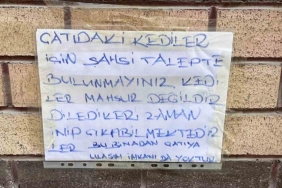 ÇATIDAKİ KEDİLER
İÇİN ŞAHSİ TALEPTE
BULUNMAYINIZ. KEDİ
LER MAHSUR DEĞİLDİR
DİLEDİKERİ ZAMAN
İNİP ÇIKABİLMEKTEDİR
LER BU BİNADAN ÇATIYA
ULAŞIM İMKANI DA YOKTUR.